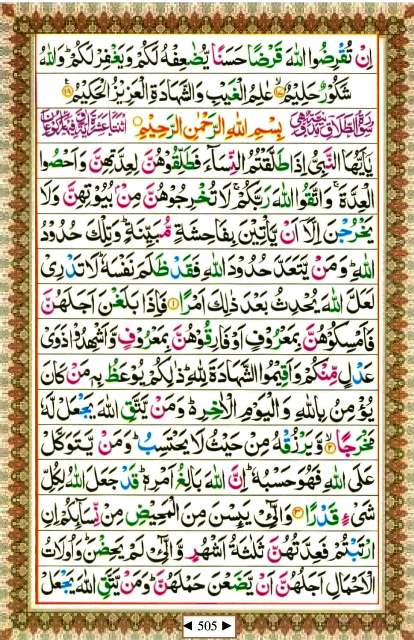 اِنۡ تُقۡرِضُوا اللّٰهَ قَرۡضًا حَسَنًا يُّضٰعِفۡهُ لَكُمۡ وَيَغۡفِرۡ لَكُمۡ ؕ وَاللّٰهُ
شَكُوۡرٌ حَلِيۡمٌ ۙ‏﴿۱۷﴾ عٰلِمُ الۡغَيۡبِ وَالشَّهَادَةِ الۡعَزِيۡزُ الۡحَكِيۡمُ ﴿۱۸﴾
بِسۡمِ اللّٰهِ الرَّحۡمٰنِ الرَّحِيۡمِ
يٰۤاَيُّهَا النَّبِىُّ اِذَا طَلَّقۡتُمُ النِّسَآءَ فَطَلِّقُوۡهُنَّ لِعِدَّتِهِنَّ وَاَحۡصُوا
الۡعِدَّةَ ۚ وَاتَّقُوا اللّٰهَ رَبَّكُمۡ ۚ لَا تُخۡرِجُوۡهُنَّ مِنۡۢ بُيُوۡتِهِنَّ وَلَا
يَخۡرُجۡنَ اِلَّاۤ اَنۡ يَّاۡتِيۡنَ بِفَاحِشَةٍ مُّبَيِّنَةٍ ؕ وَتِلۡكَ حُدُوۡدُ
اللّٰهِ ؕ وَمَنۡ يَّتَعَدَّ حُدُوۡدَ اللّٰهِ فَقَدۡ ظَلَمَ نَفۡسَهٗ ؕ لَا تَدۡرِىۡ
لَعَلَّ اللّٰهَ يُحۡدِثُ بَعۡدَ ذٰلِكَ اَمۡرًا ﴿۱﴾ فَاِذَا بَلَغۡنَ اَجَلَهُنَّ
فَاَمۡسِكُوۡهُنَّ بِمَعۡرُوۡفٍ اَوۡ فَارِقُوۡهُنَّ بِمَعۡرُوۡفٍ وَّاَشۡهِدُوۡا ذَوَىۡ
عَدۡلٍ مِّنۡكُمۡ وَاَقِيۡمُوا الشَّهَادَةَ لِلّٰهِ ؕ ذٰلِكُمۡ يُوۡعَظُ بِهٖ مَنۡ كَانَ
يُؤۡمِنُ بِاللّٰهِ وَالۡيَوۡمِ الۡاٰخِرِ ؕ۬ وَمَنۡ يَّتَّقِ اللّٰهَ يَجۡعَلْ لَّهٗ
مَخۡرَجًا ۙ‏﴿۲﴾ وَّيَرۡزُقۡهُ مِنۡ حَيۡثُ لَا يَحۡتَسِبُ ؕ وَمَنۡ يَّتَوَكَّلۡ
عَلَى اللّٰهِ فَهُوَ حَسۡبُهٗ ؕ اِنَّ اللّٰهَ بَالِغُ اَمۡرِهٖ ؕ قَدۡ جَعَلَ اللّٰهُ لِكُلِّ
شَىۡءٍ قَدۡرًا ﴿۳﴾ وَالّٰٓـىٴِۡ يَٮِٕسۡنَ مِنَ الۡمَحِيۡضِ مِنۡ نِّسَآٮِٕكُمۡ اِنِ
ارۡتَبۡتُمۡ فَعِدَّتُهُنَّ ثَلٰثَةُ اَشۡهُرٍ ۙ وَّالّٰٓـىٴِۡ لَمۡ يَحِضۡنَ ؕ وَاُولَاتُ
الۡاَحۡمَالِ اَجَلُهُنَّ اَنۡ يَّضَعۡنَ حَمۡلَهُنَّ ؕ وَمَنۡ يَّتَّقِ اللّٰهَ يَجۡعَلْ
◄ 505 ►